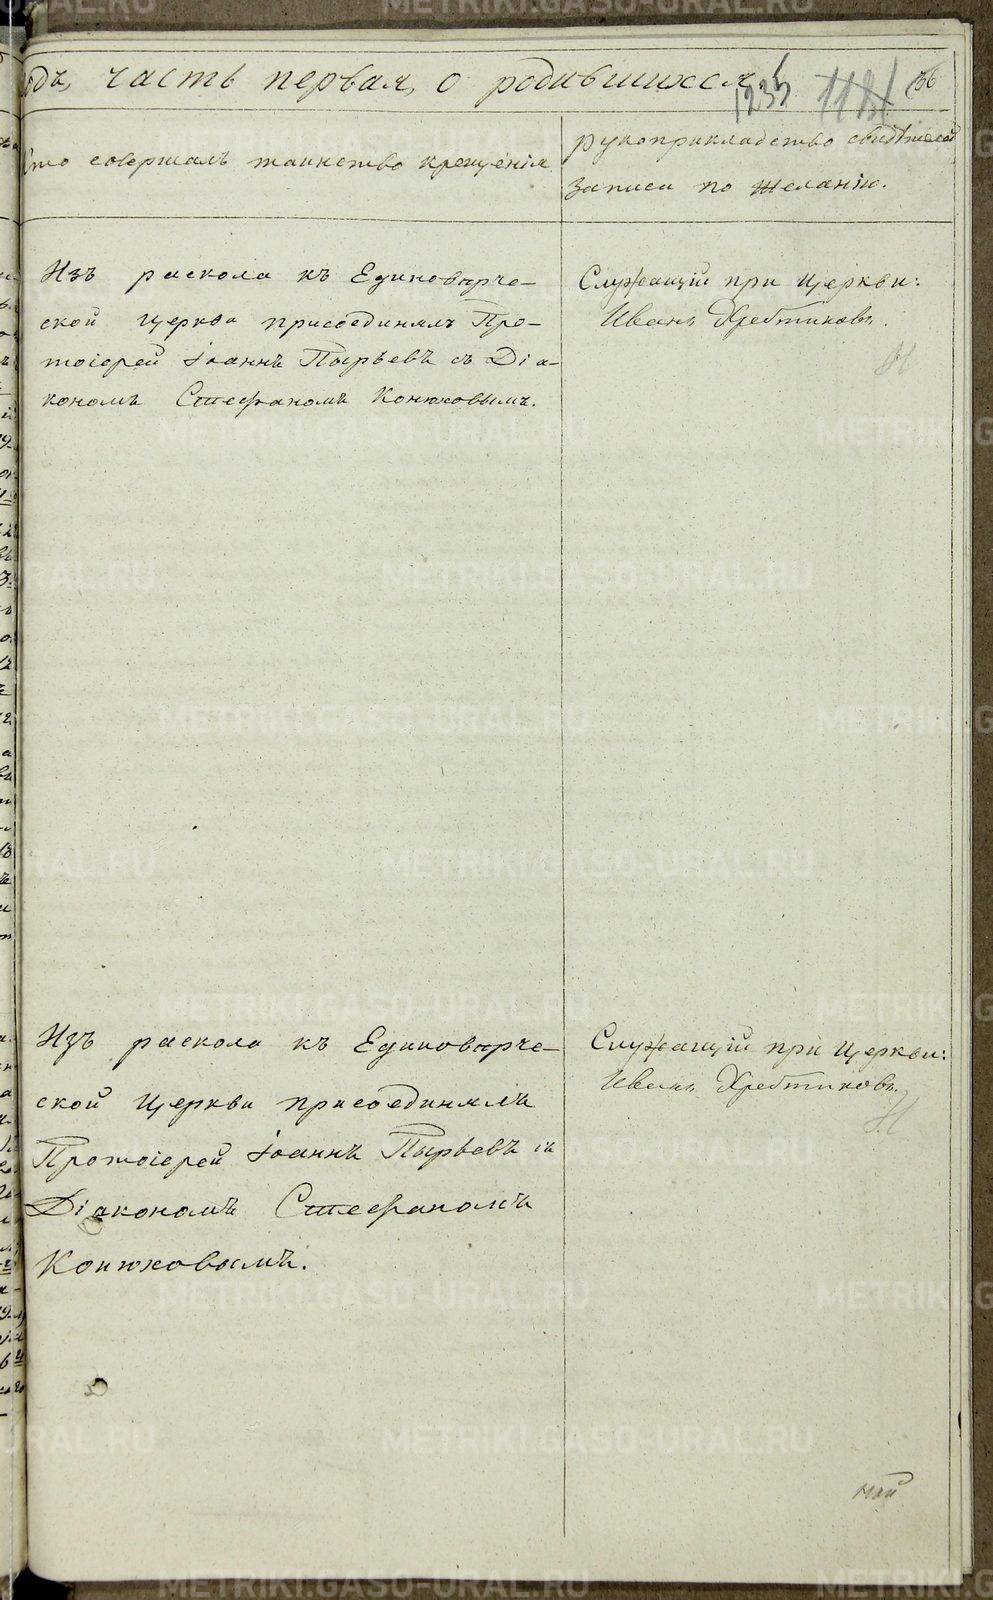 одъ, часть первая, о родившихся.
1235
Кто совершалъ таинство крещенія
рукоприкладство свидѣтелей
записи по желанію.
Изъ раскола къ Единовѣрче-
ской Церкви присоединялъ Про-
тоіерей Іоаннъ Пырьевъ съ Діа-
кономъ Стефаномъ Конюховымъ.
Служащій при Церкви:
Иванъ Хребтиковъ.
Изъ раскола къ Единовѣрче-
ской Церкви присоединялъ
Протоіерей Іоаннъ Пырьевъ съ
Діакономъ Стефаномъ
Конюховымъ.
Служащій при Церкви:
Иванъ Хребтиковъ.
май
METRIKI.GASO-URAL.RU